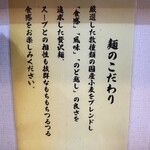 麺のこだわり
厳選した数種類の国産小麦をブレンドし
「食感」「風味」「のど越し」の良さを
追求した贅沢麺。
スープとの相性も抜群なもちもちつるつる
食感をお楽しみください。